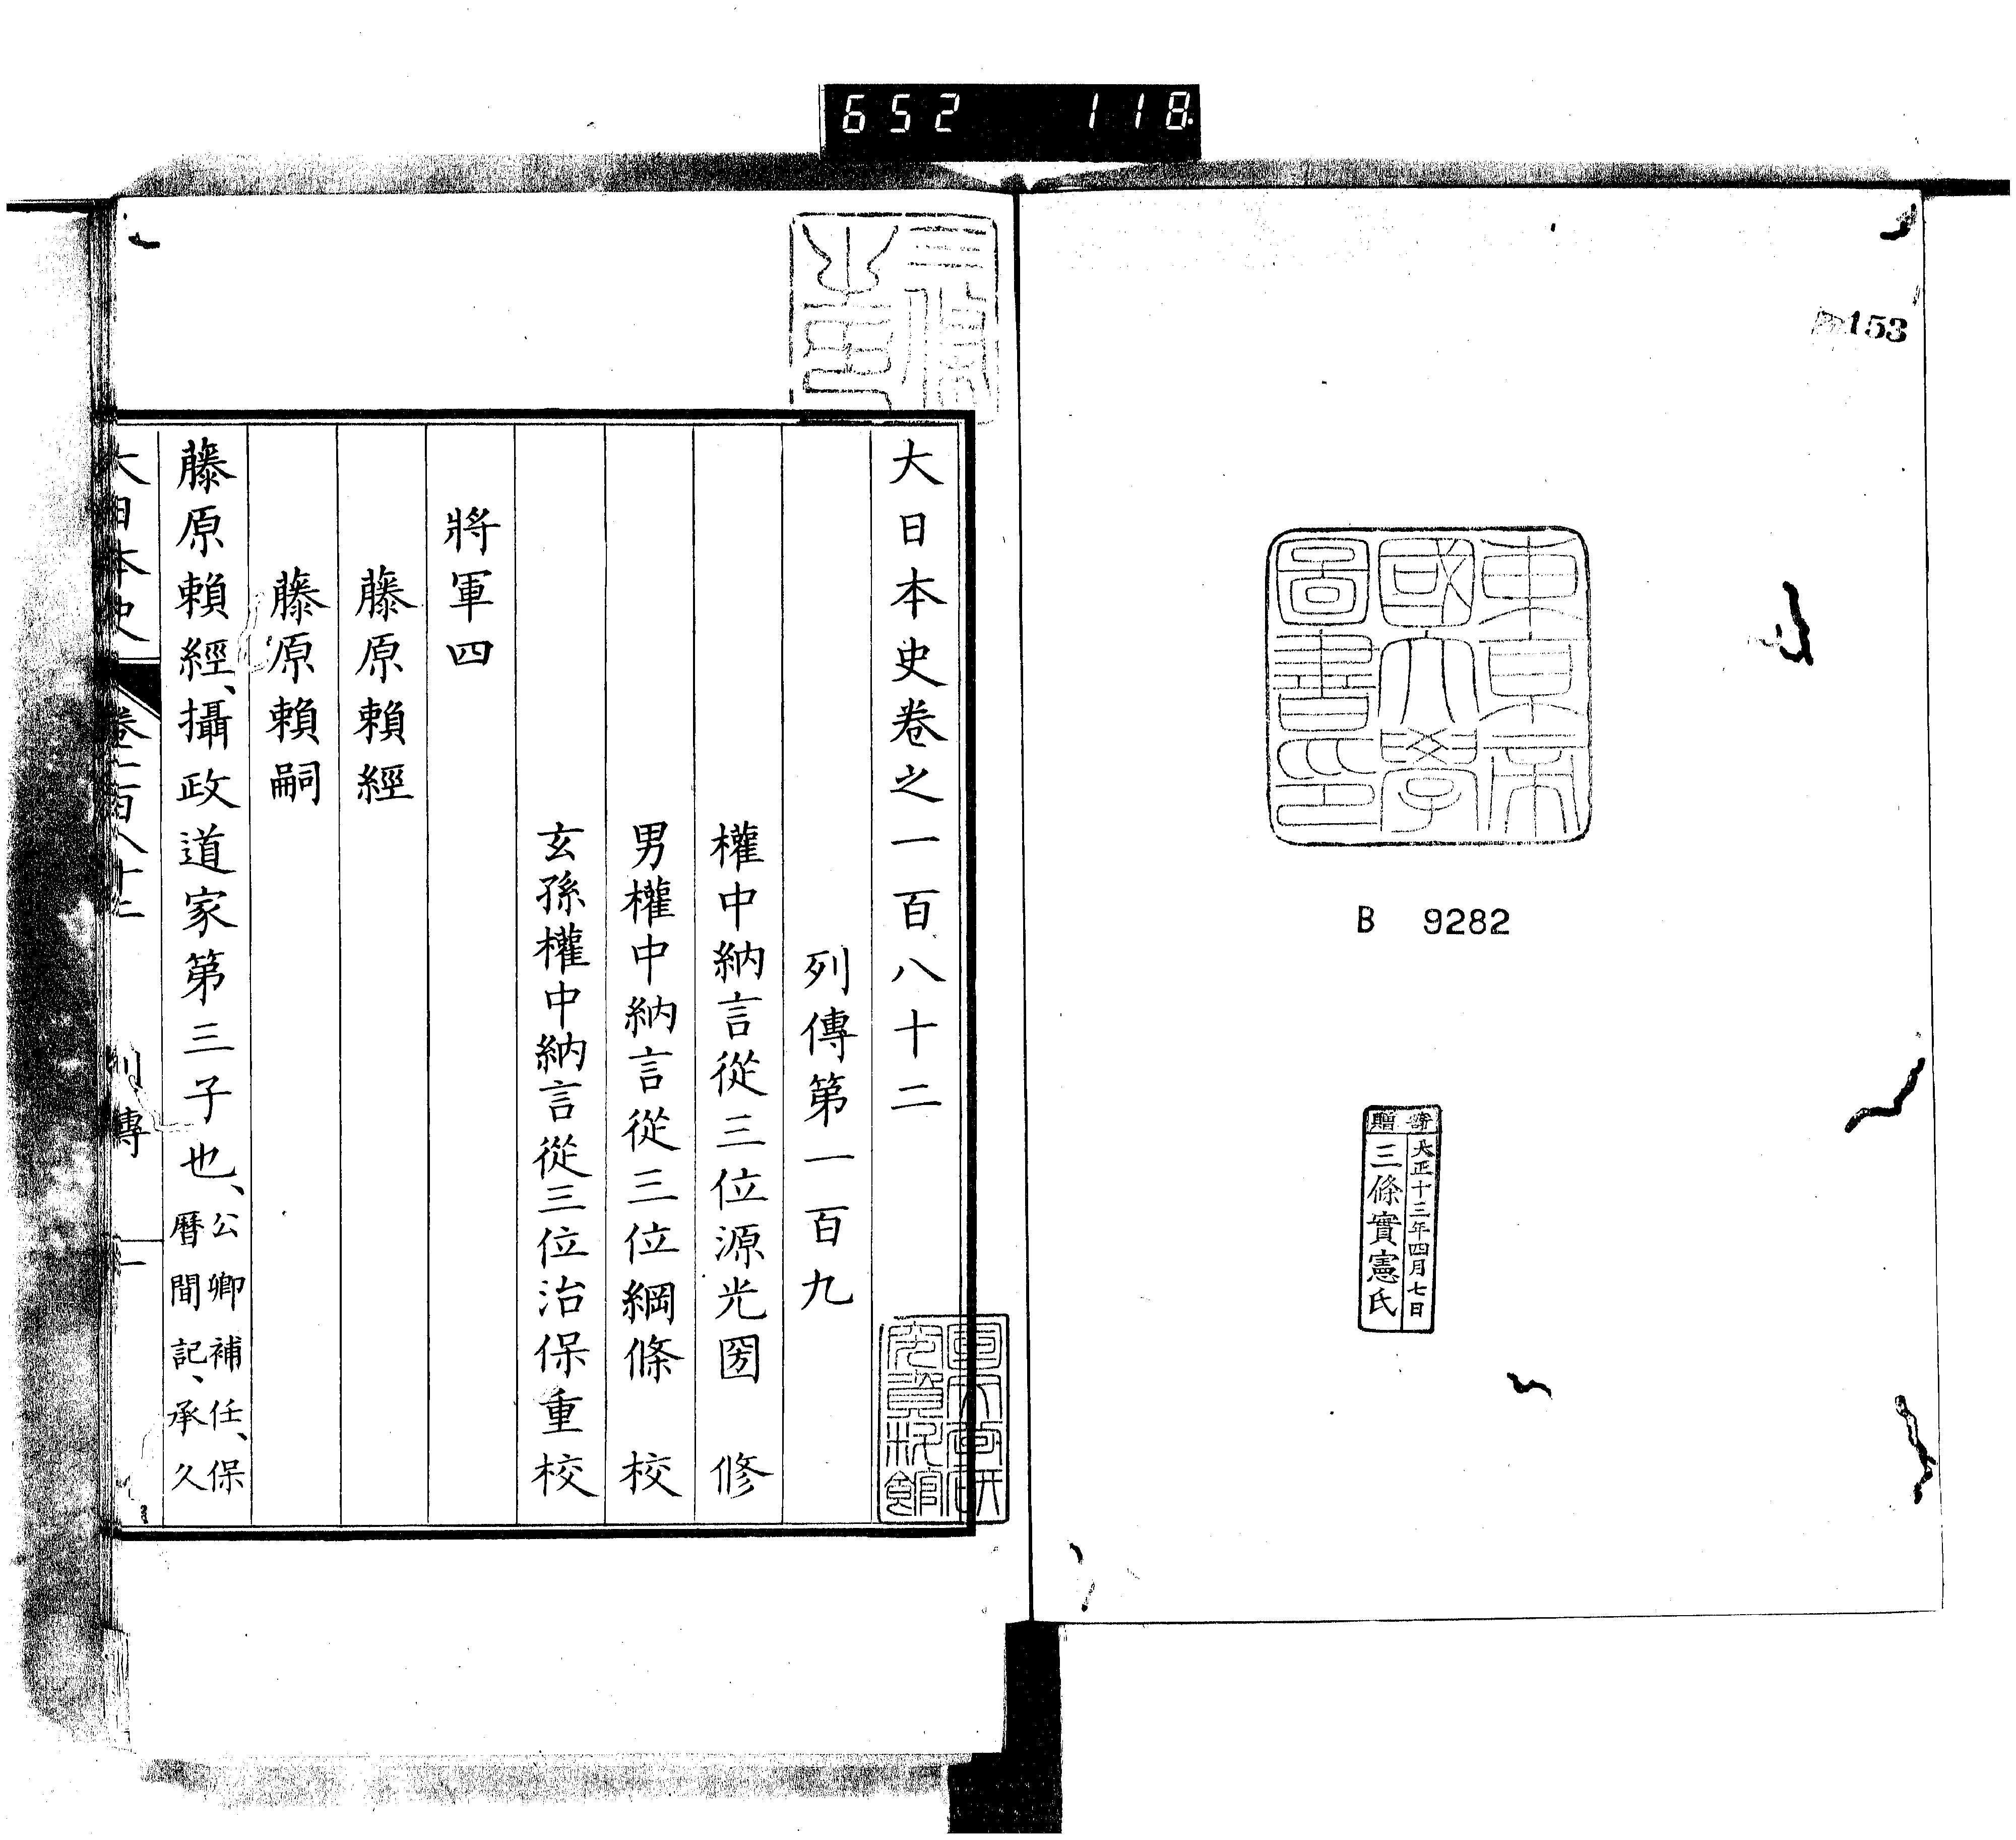 652 118
153
東京帝
國大學
圖書印
B 9282
寄贈
大正十三年四月七日
三條實憲氏
大日本史卷之一百八十二
列傳第一百九
權中納言從三位源光圀 修
男權中納言從三位綱條 校
玄孫權中納言從三位治保重校
將軍四
藤原賴經
藤原賴嗣
藤原賴經、攝政道家第三子也、公卿補任、保
曆間記、承久
大日本史 卷一百八十二 列傳 一